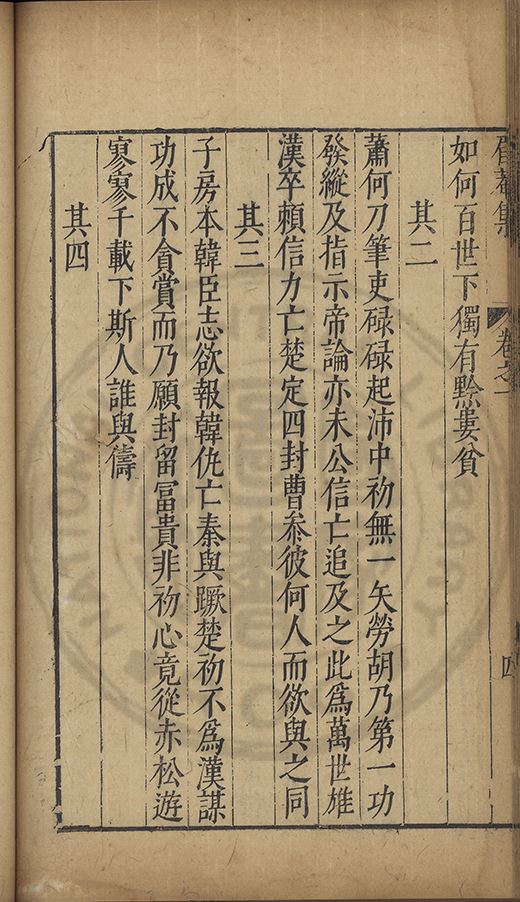 卷之一
四
如何百世下獨有黔婁貧
其二
蕭何刀筆吏碌碌起沛中初無一矢勞胡乃第一功
發縱及指示帝論亦未公信亡追及之此爲萬世雄
漢卒賴信力亡楚定四封曹叅彼何人而欲與之同
其三
子房本韓臣志欲報韓仇亡秦與蹶楚初不爲漢謀
功成不貪賞而乃願封留冨貴非初心竟從赤松遊
寥寥千載下斯人誰與儔
其四